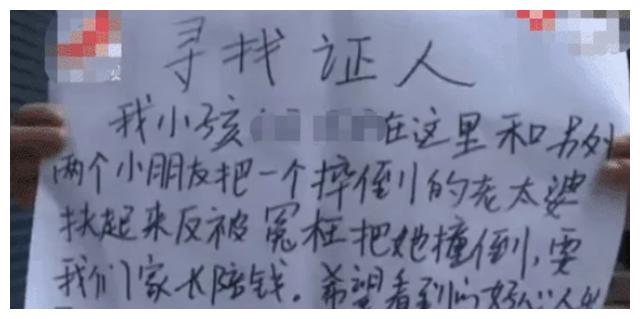 寻找证人
我小孩在这里和另外
两个小朋友把一个摔倒的老太婆
扶起来反被冤枉把她撞倒,要
我们家长陪钱。希望看到的好心人